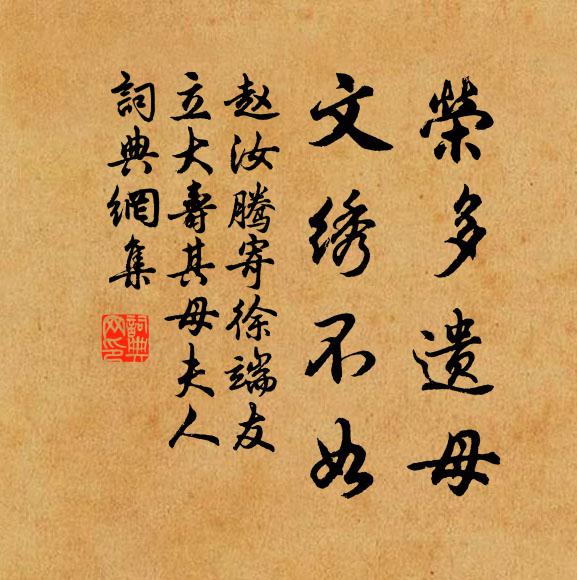 荣多遗母
文绣不如
赵汝腾寄徐端友
立大寿其母夫人
詞典網集
詞典
网印